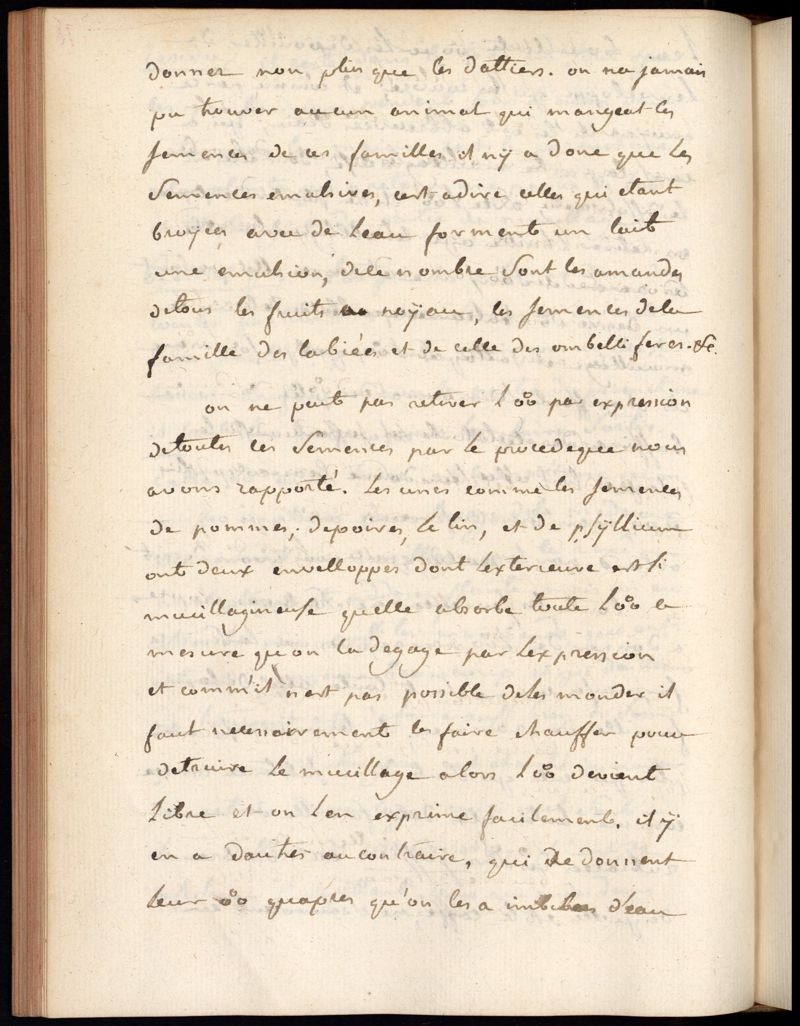 donner non plus que les dattiers. on na jamais
pu trouver aucun animal qui mangeat les
semences de ces familles il nÿ a donc que les
semences emulsives, cest adire celles qui etant
broyées avec de leau forment un lait
une emulsion, de ce nombre sont les amandes
detous les fruits a noÿau, les semences dela
famille des labiées et de celle des ombelliferes. &c.
on ne peut pas retirer l'o°o par expression
detoutes ces semences par le procedeque nous
avons rapporté. les unes comme les semences
de pommes, depoires, le lin, et de psÿllium
ont deux envelloppes dont lexterieure est si
mucillagineuse quelle absorbe toute l'o°o a
mesure qu'on la degage par lexpression
et comm'il n'est pas possible deles monder il
faut necessairement les faire chauffer pour
detruire le mucillage alors l'o°o devient
libre et on len exprime facilement. il ÿ
en a dautres aucontraire, qui ne donnent
leur o°o quapres qu'on les a imbibées d'eau